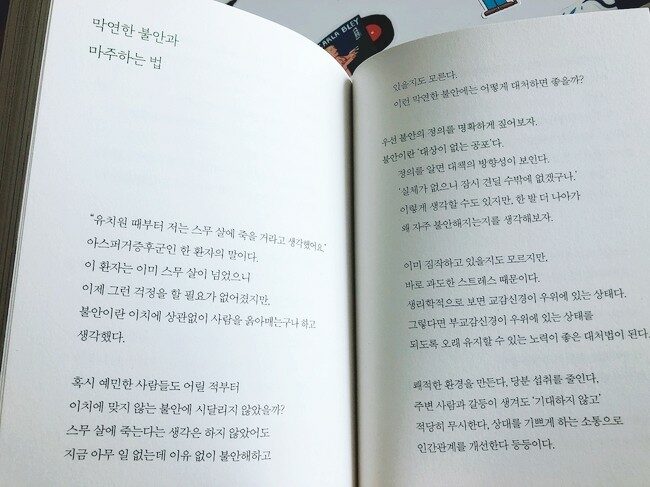 막연한 불안과
마주하는 법
“유치원 때부터 저는 스무 살에 죽을 거라고 생각했어요.”
아스퍼거증후군인 한 환자의 말이다.
이 환자는 이미 스무 살이 넘었으니
이제 그런 걱정을 할 필요가 없어졌지만,
불안이란 이치에 상관없이 사람을 옭아매는구나 하고
생각했다.
혹시 예민한 사람들도 어릴 적부터
이치에 맞지 않는 불안에 시달리지 않았을까?
스무 살에 죽는다는 생각은 하지 않았어도
지금 아무 일 없는데 이유 없이 불안해하고
있을지도 모른다.
이런 막연한 불안에는 어떻게 대처하면 좋을까?
우선 불안의 정의를 명확하게 짚어보자.
불안이란 ‘대상이 없는 공포’다.
정의를 알면 대책의 방향성이 보인다.
‘실체가 없으니 잠시 견딜 수밖에 없겠구나.’
이렇게 생각할 수도 있지만, 한 발 더 나아가
왜 자주 불안해지는지를 생각해보자.
이미 짐작하고 있을지도 모르지만,
바로 과도한 스트레스 때문이다.
생리학적으로 보면 교감신경이 우위에 있는 상태다.
그렇다면 부교감신경이 우위에 있는 상태를
되도록 오래 유지할 수 있는 노력이 좋은 대처법이 된다.
쾌적한 환경을 만든다, 당분 섭취를 줄인다,
주변 사람과 갈등이 생겨도 ‘기대하지 않고’
적당히 무시한다, 상대를 기쁘게 하는 소통으로
인간관계를 개선한다 등등이다.
CARLA BLEY